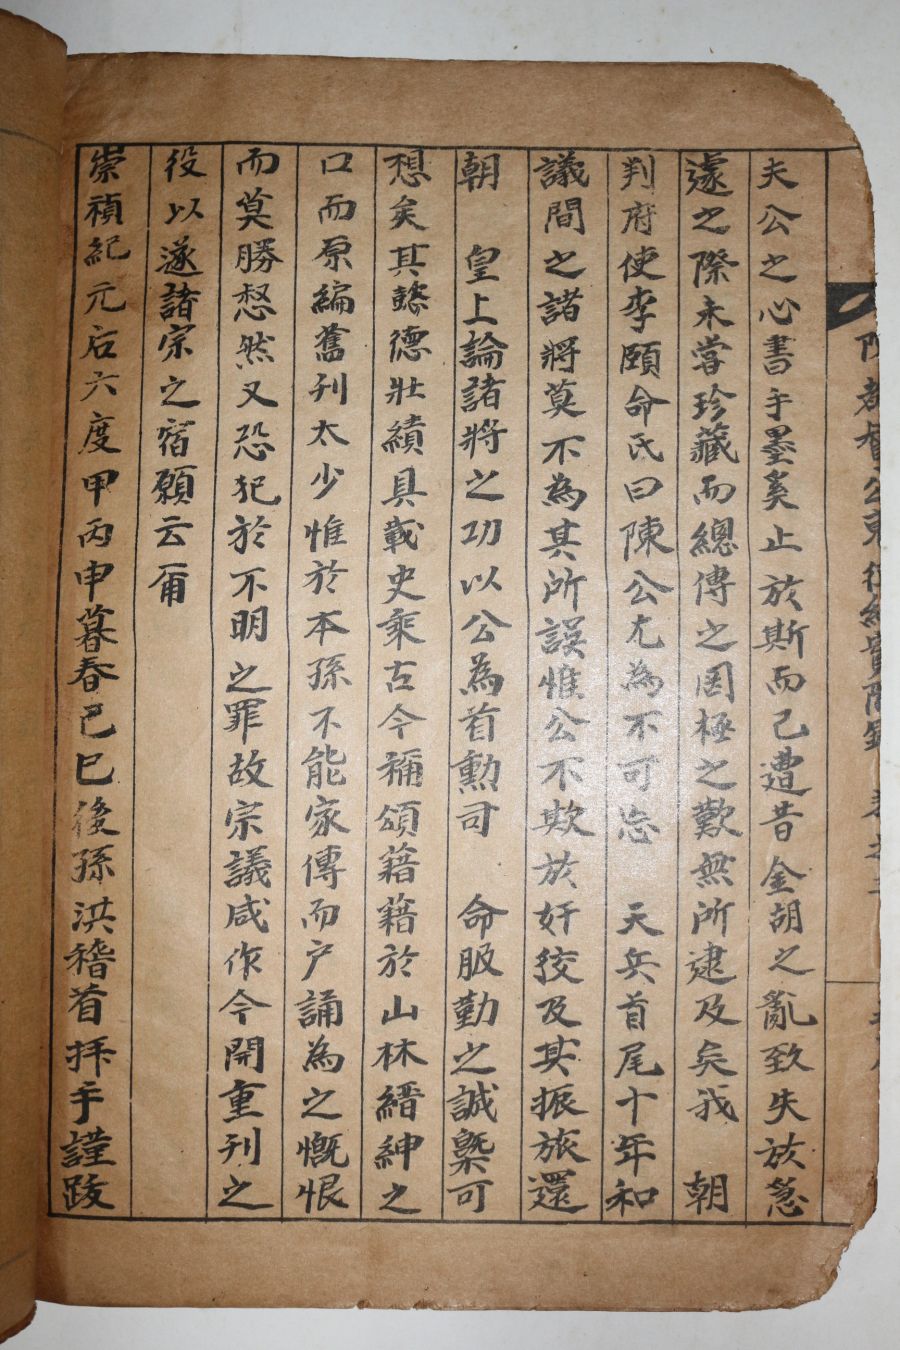 夫公之心書手墨矣止於斯而已遭昔金胡之亂致失於急
遽之際未嘗珍藏而總傳之罔極之歎無所逮及矣我 朝
判府使李頤命氏曰陳公尤為不可忘 天兵首尾十年和
議間之諸將莫不為其所誤惟公不欺於奸狡及其振旅還
朝 皇上論諸將之功以公為首勳司 命服勤之誠槩可
想矣其懿德壯績具載史乘古今稱頌藉藉於山林縉紳之
口而原編舊刊太少惟於本孫不能家傳而戶誦為之慨恨
而莫勝惄然又恐犯於不明之罪故宗議咸作今開重刊之
役以遂諸宗之宿願云爾
崇禎紀元后六度甲丙申暮春己巳後孫洪稽首拜手謹跋